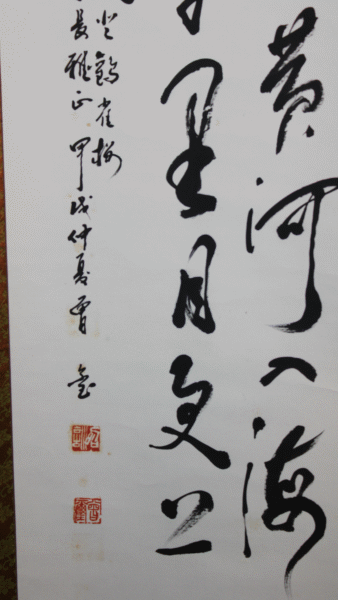 黄河入海
里目更上
登鹳雀楼
雅正甲戌仲夏